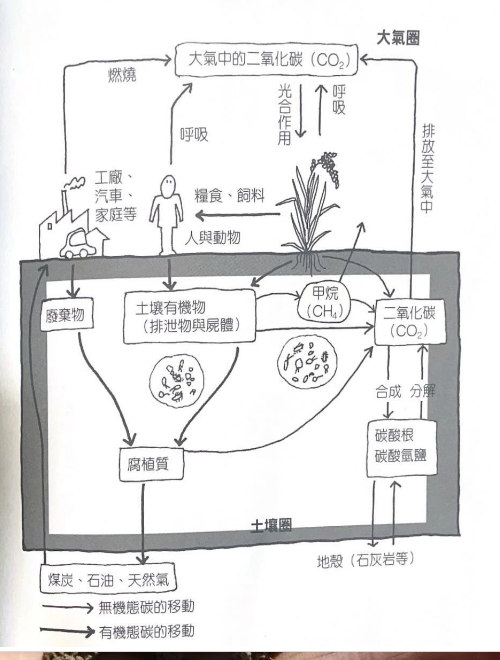 大氣圈
大氣中的二氧化碳（CO₂）
燃燒
呼吸
光合作用
呼吸
排放至大氣中
工廠、
汽車、
家庭等
糧食、飼料
人與動物
廢棄物
土壤有機物
（排泄物與屍體）
甲烷
（CH₄）
二氧化碳
（CO₂）
合成 分解
碳酸根
碳酸氫鹽
腐植質
土壤圈
地殼（石灰岩等）
煤炭、石油、天然氣
無機態碳的移動
有機態碳的移動